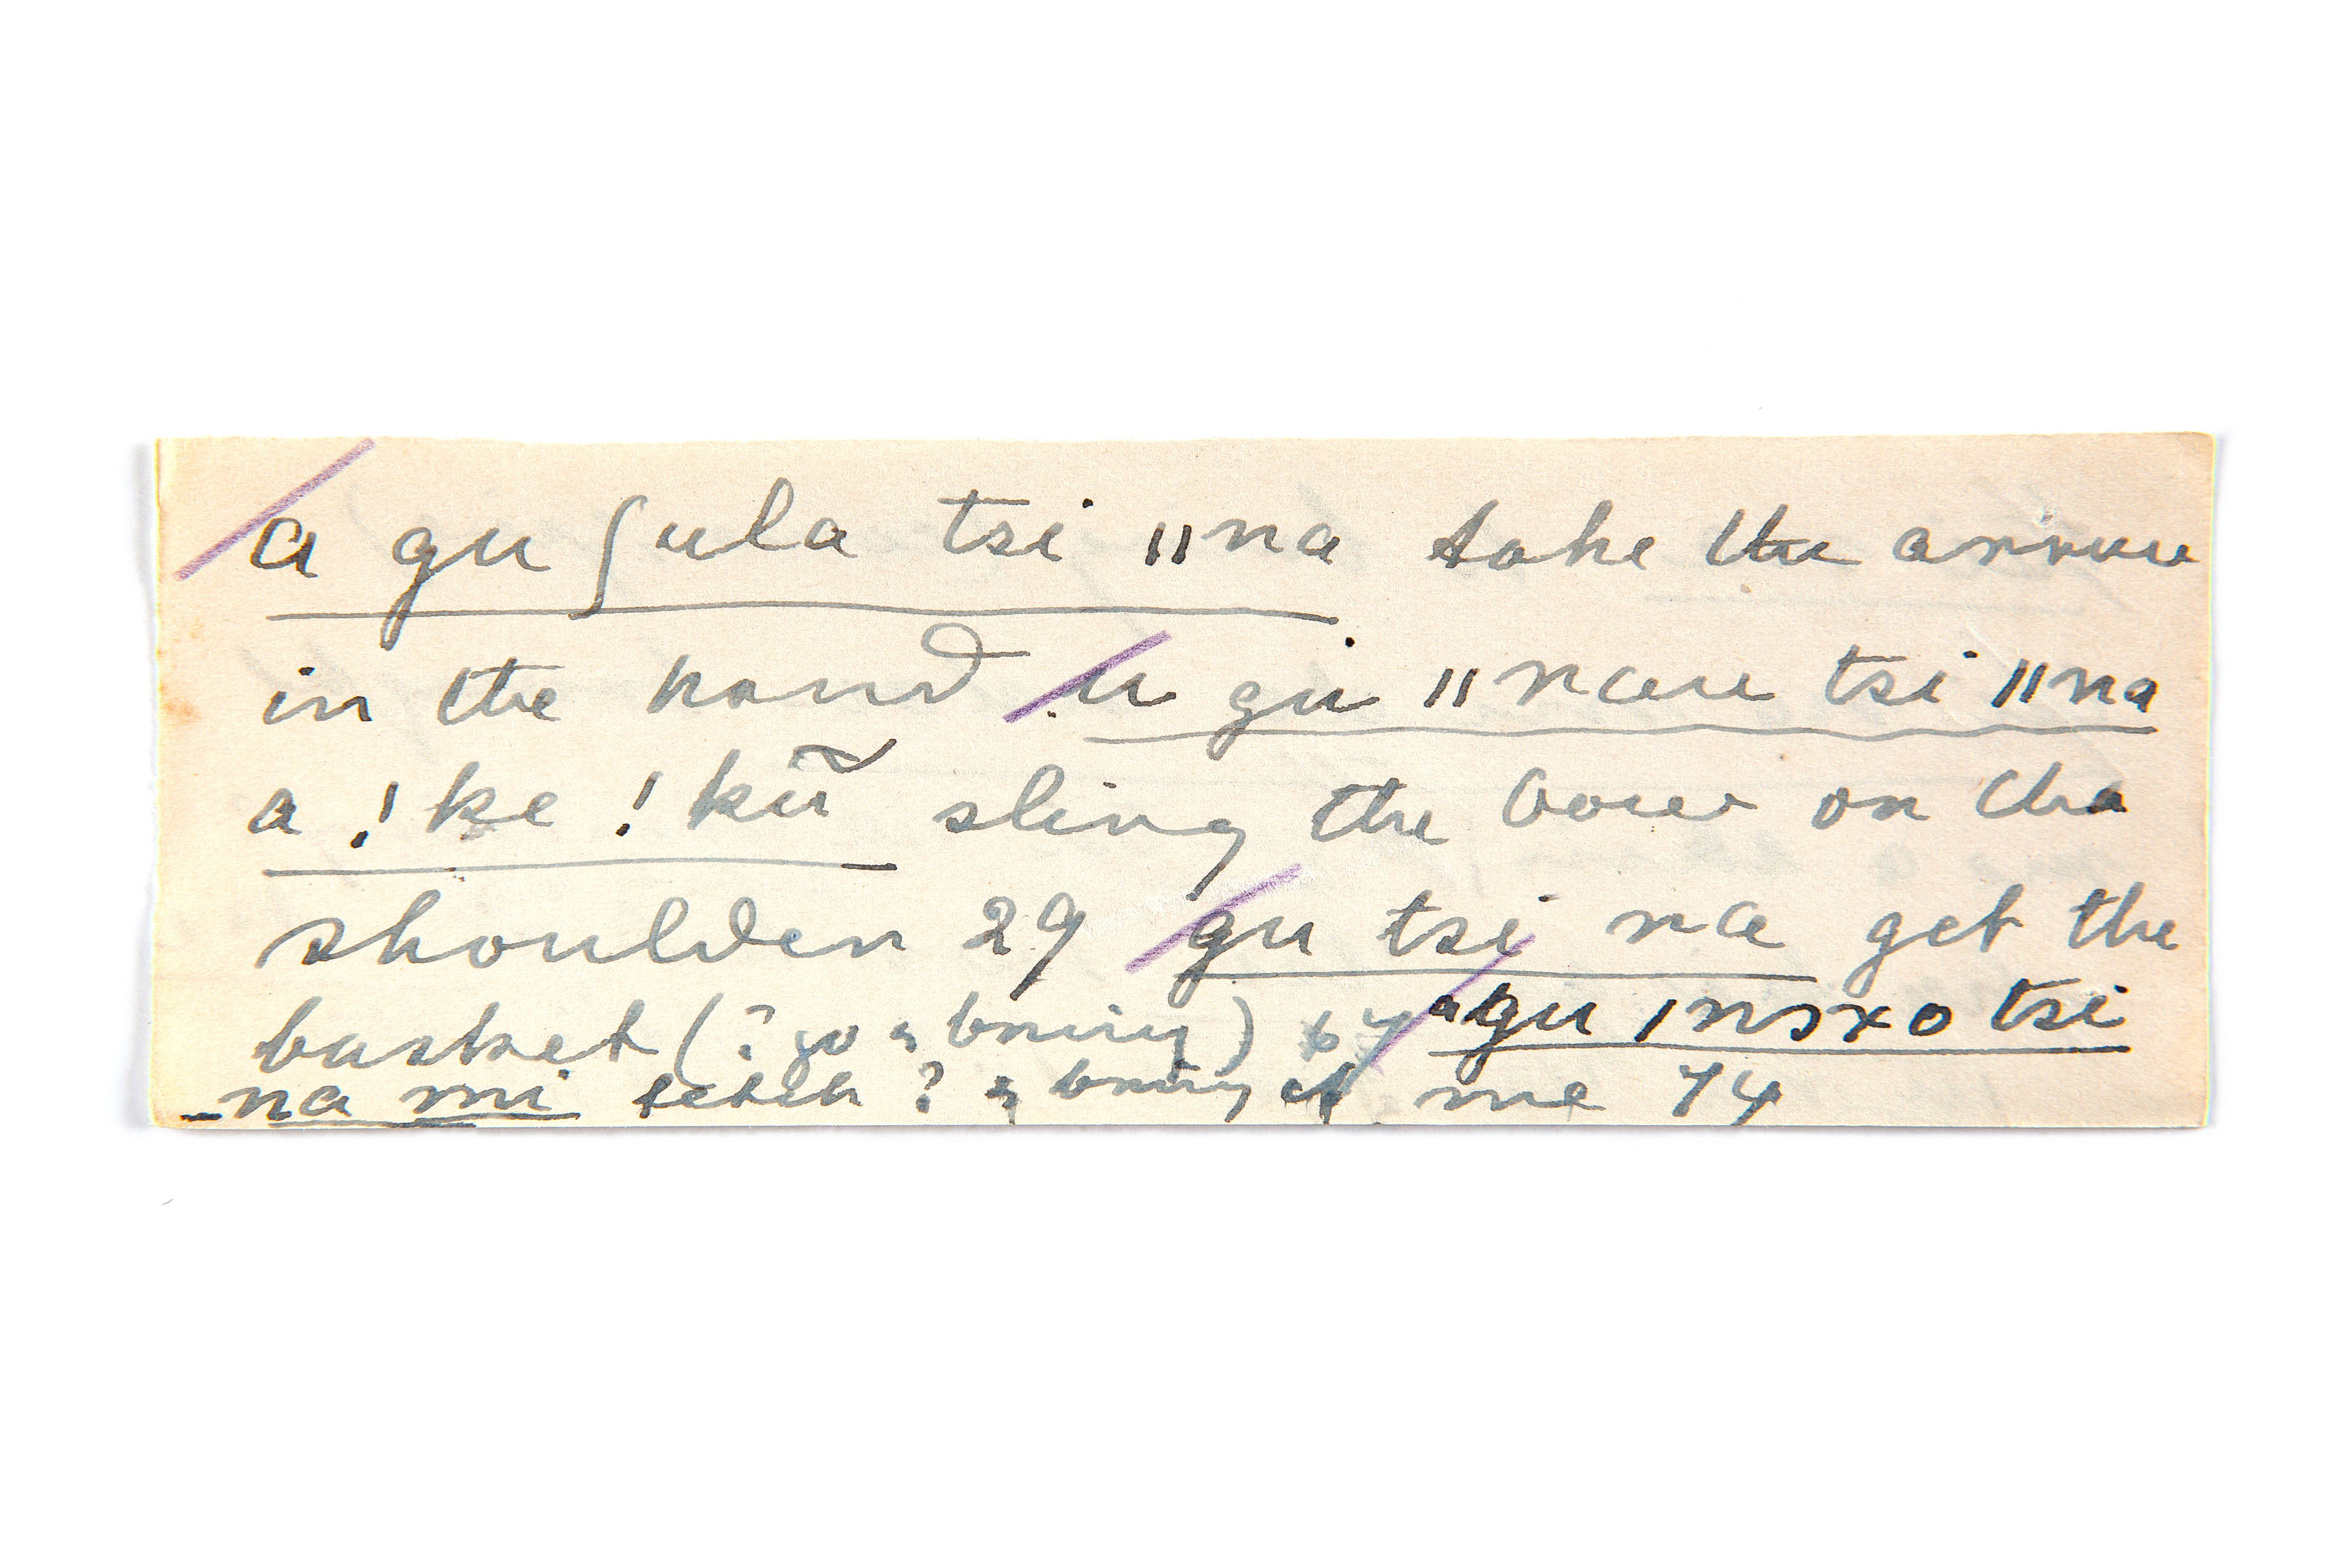 a gu ʃula tsi ǁna take the arrow
in the hand u gu ǁnau tsi ǁna
a !ke !kũ sling the bow on the
shoulder 29 gu tsi na get the
basket (? go & bring) 64 a gu ǀnɔxo tsi
na mi fetch ? & bring it me 74